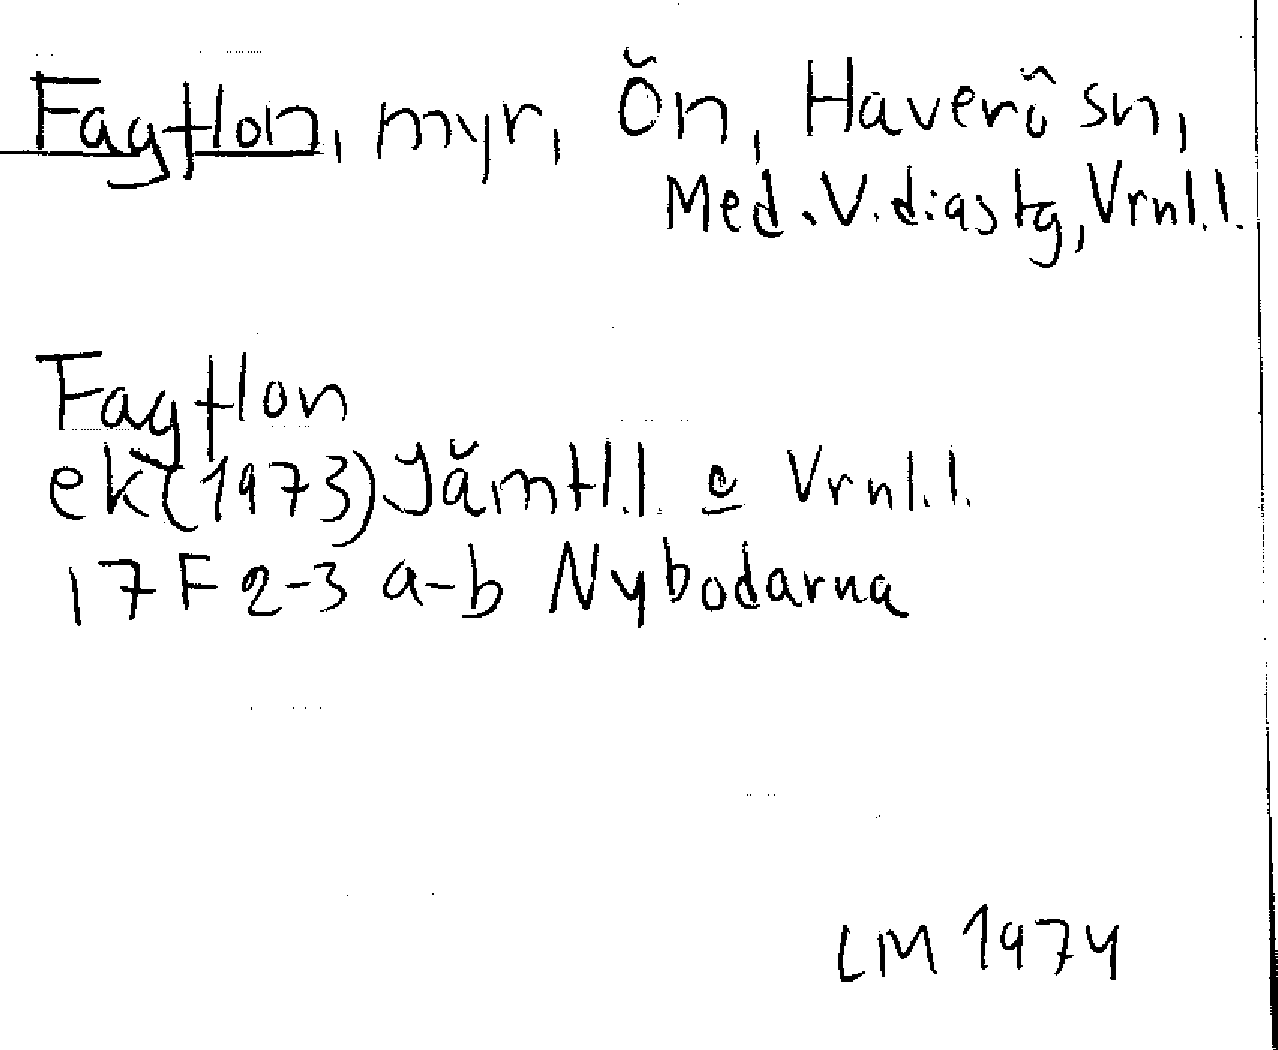 Fagflon, myr, Ön, Haverö sn,
Med. V. diastg, Vrnl.l.
Fagflon
ek (1973) Jämtl.l. o Vrnl.l.
17F 2-3 a-b Nybodarna
LM 1974